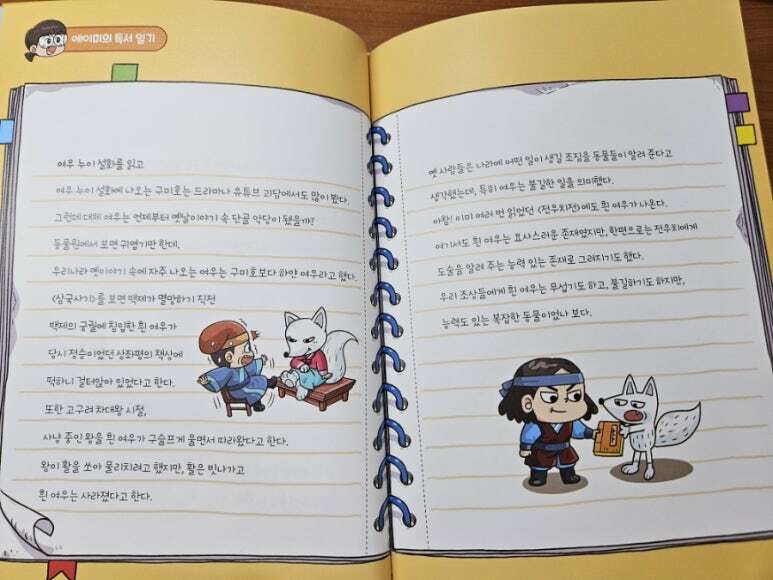 에이미의 독서 일기
여우 누이 설화를 읽고
여우 누이 설화에 나오는 구미호는 드라마나 유튜브 괴담에서도 많이 봤다.
그런데 대체 여우는 언제부터 옛날이야기 속 단골 악당이 됐을까?
동물원에서 보면 귀엽기만 한데.
우리나라 옛이야기 속에 자주 나오는 여우는 구미호보다 하얀 여우라고 했다.
《삼국사기》를 보면 백제가 멸망하기 직전
백제의 궁궐에 침입한 흰 여우가
당시 정승이었던 상좌평의 책상에
떡하니 걸터앉아 있었다고 한다.
또한 고구려 차대왕 시절,
사냥 중인 왕을 흰 여우가 구슬프게 울면서 따라왔다고 한다.
왕이 활을 쏘아 물리치려고 했지만, 활은 빗나가고
흰 여우는 사라졌다고 한다.
옛 사람들은 나라에 어떤 일이 생길 조짐을 동물들이 알려 준다고
생각했는데, 특히 여우는 불길한 일을 의미했다.
아참! 이미 여러 번 읽었던 《전우치전》에도 흰 여우가 나온다.
여기서도 흰 여우는 요사스러운 존재였지만, 한편으로는 전우치에게
도술을 알려 주는 능력 있는 존재로 그려지기도 했다.
우리 조상들에게 흰 여우는 무섭기도 하고, 불길하기도 하지만,
능력도 있는 복잡한 동물이었나 보다.